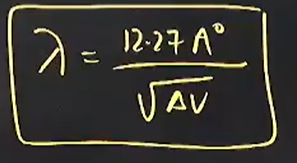 λ = 12.27 A° / √ΔV